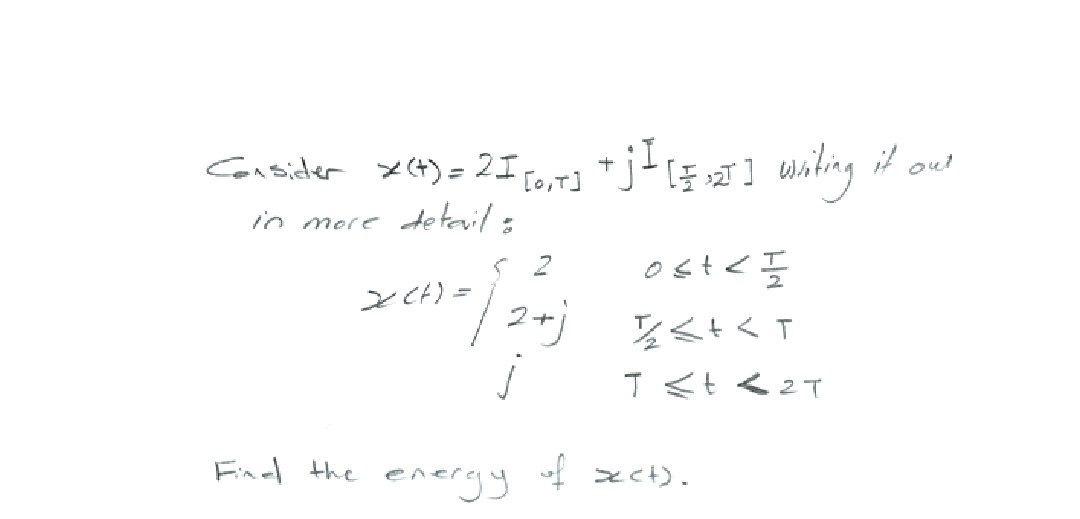 Consider x(t) = 2I[0,T] + jI[T/2,2T] writing it out
in more detail:
x(t) = { 2 0 ≤ t < T/2
2+j T/2 ≤ t < T
j T ≤ t < 2T
Find the energy of x(t).